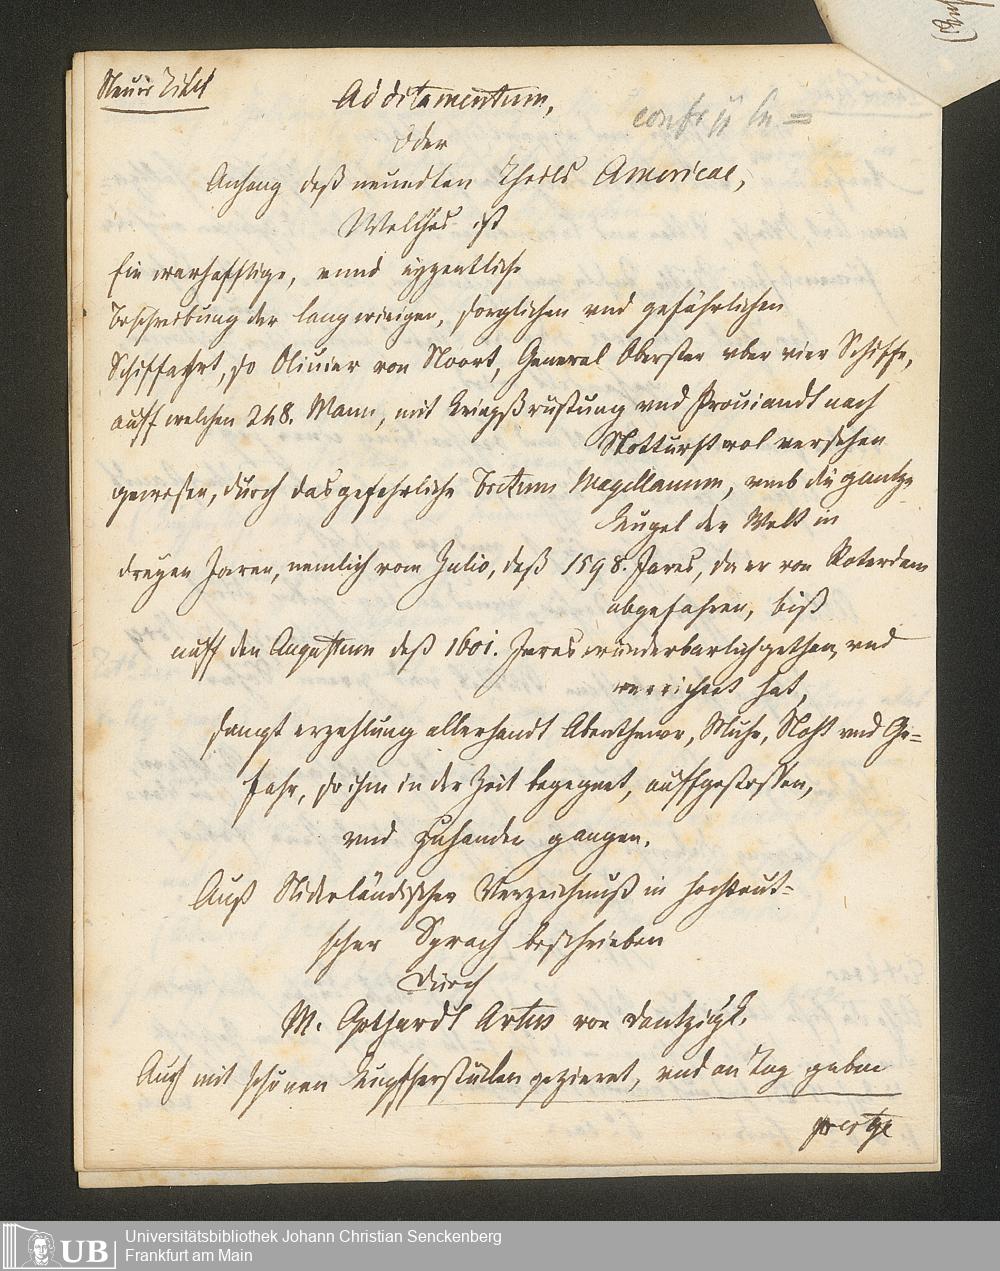 Neuer Titel
Additamentum,
Oder
Anhang deß neundten Theils Americae,
Welches ist
Ein warhafftige, vnnd eygentliche
Beschreibung der langwirigen, sorglichen vnd gefährlichen
Schiffahrt, so Oliuier von Noort, General Oberster vber vier Schiffe,
auff welchen 248. Mann, mit Kriegßrüstung vnd Prouiandt nach
Notturfft wol versehen
gewesen, durch das gefehrliche Fretum Magellanum, vmb die gantze
Kugel der Welt in
dreyen Jaren, nemlich vom Julio, deß 1598. Jares, da er von Roterdam
abgefahren, biß
auff den Augustum deß 1601. Jares wunderbarlich gethan, vnd
verrichtet hat,
sampt erzehlung allerhandt Abenthewr, Muhe, Noht vnd Ge=
fahr, so ihm in der Zeit begegnet, auffgestossen,
vnd zuhanden gangen.
Auß Niderländischer Verzeichnuß in hochteut=
scher Sprach beschrieben
Durch
M. Gothardt Artus von Dantzigk.
Auch mit schönen Kupfferstücken gezieret, vnd an Tag geben
UB
Universitätsbibliothek Johann Christian Senckenberg
Frankfurt am Main